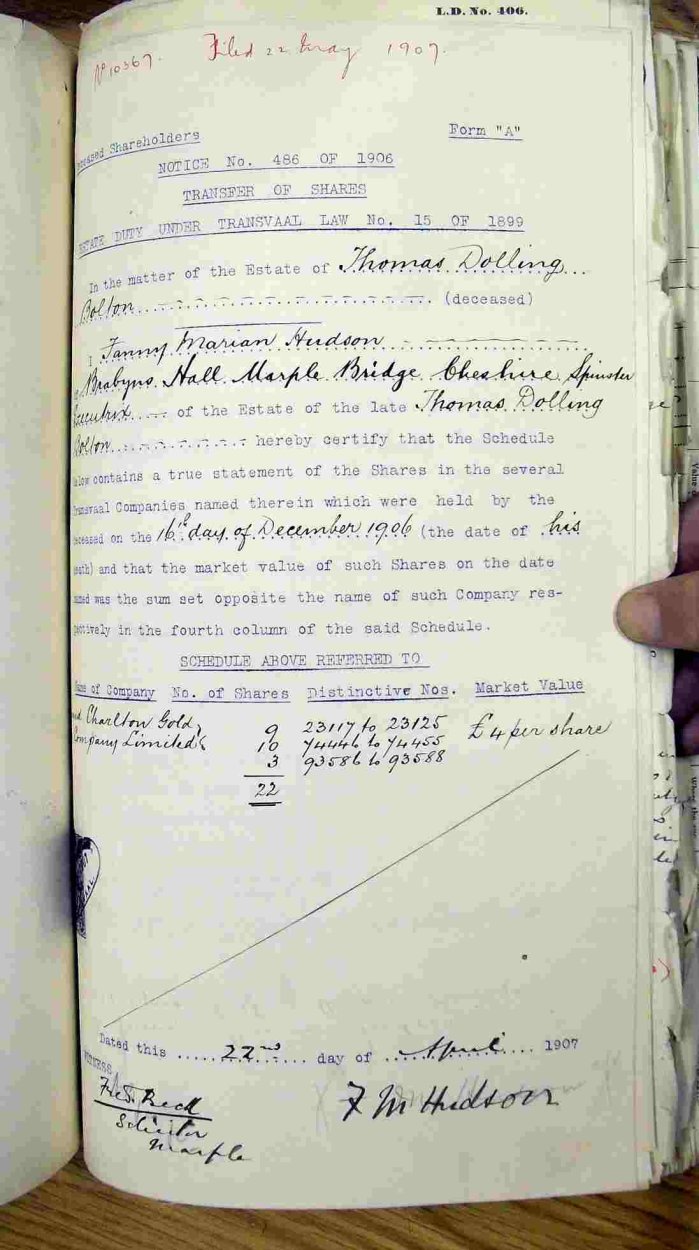 L.D. No. 406.
No 10367. Filed 22 May 1907.
Form "A"
Shareholders
NOTICE No. 486 OF 1906
TRANSFER OF SHARES
ESTATE DUTY UNDER TRANSVAAL LAW No. 15 OF 1899
In the matter of the Estate of Thomas Dolling
Bolton (deceased)
I Fanny Marian Hudson
Brabyns Hall Marple Bridge Cheshire Spinster
Executrix of the Estate of the late Thomas Dolling
Bolton hereby certify that the Schedule
below contains a true statement of the Shares in the several
Transvaal Companies named therein which were held by the
deceased on the 16th day of December 1906 (the date of his
death) and that the market value of such Shares on the date
named was the sum set opposite the name of such Company res-
pectively in the fourth column of the said Schedule.
SCHEDULE ABOVE REFERRED TO
Name of Company No. of Shares Distinctive Nos. Market Value
Charlton Gold 9 23117 to 23125 £4 per share
Company Limited 10 74446 to 74455
3 93586 to 93588
22
Dated this 22nd day of April 1907
WITNESS
Fred. Beck
Solicitor
Marple
F M Hudson